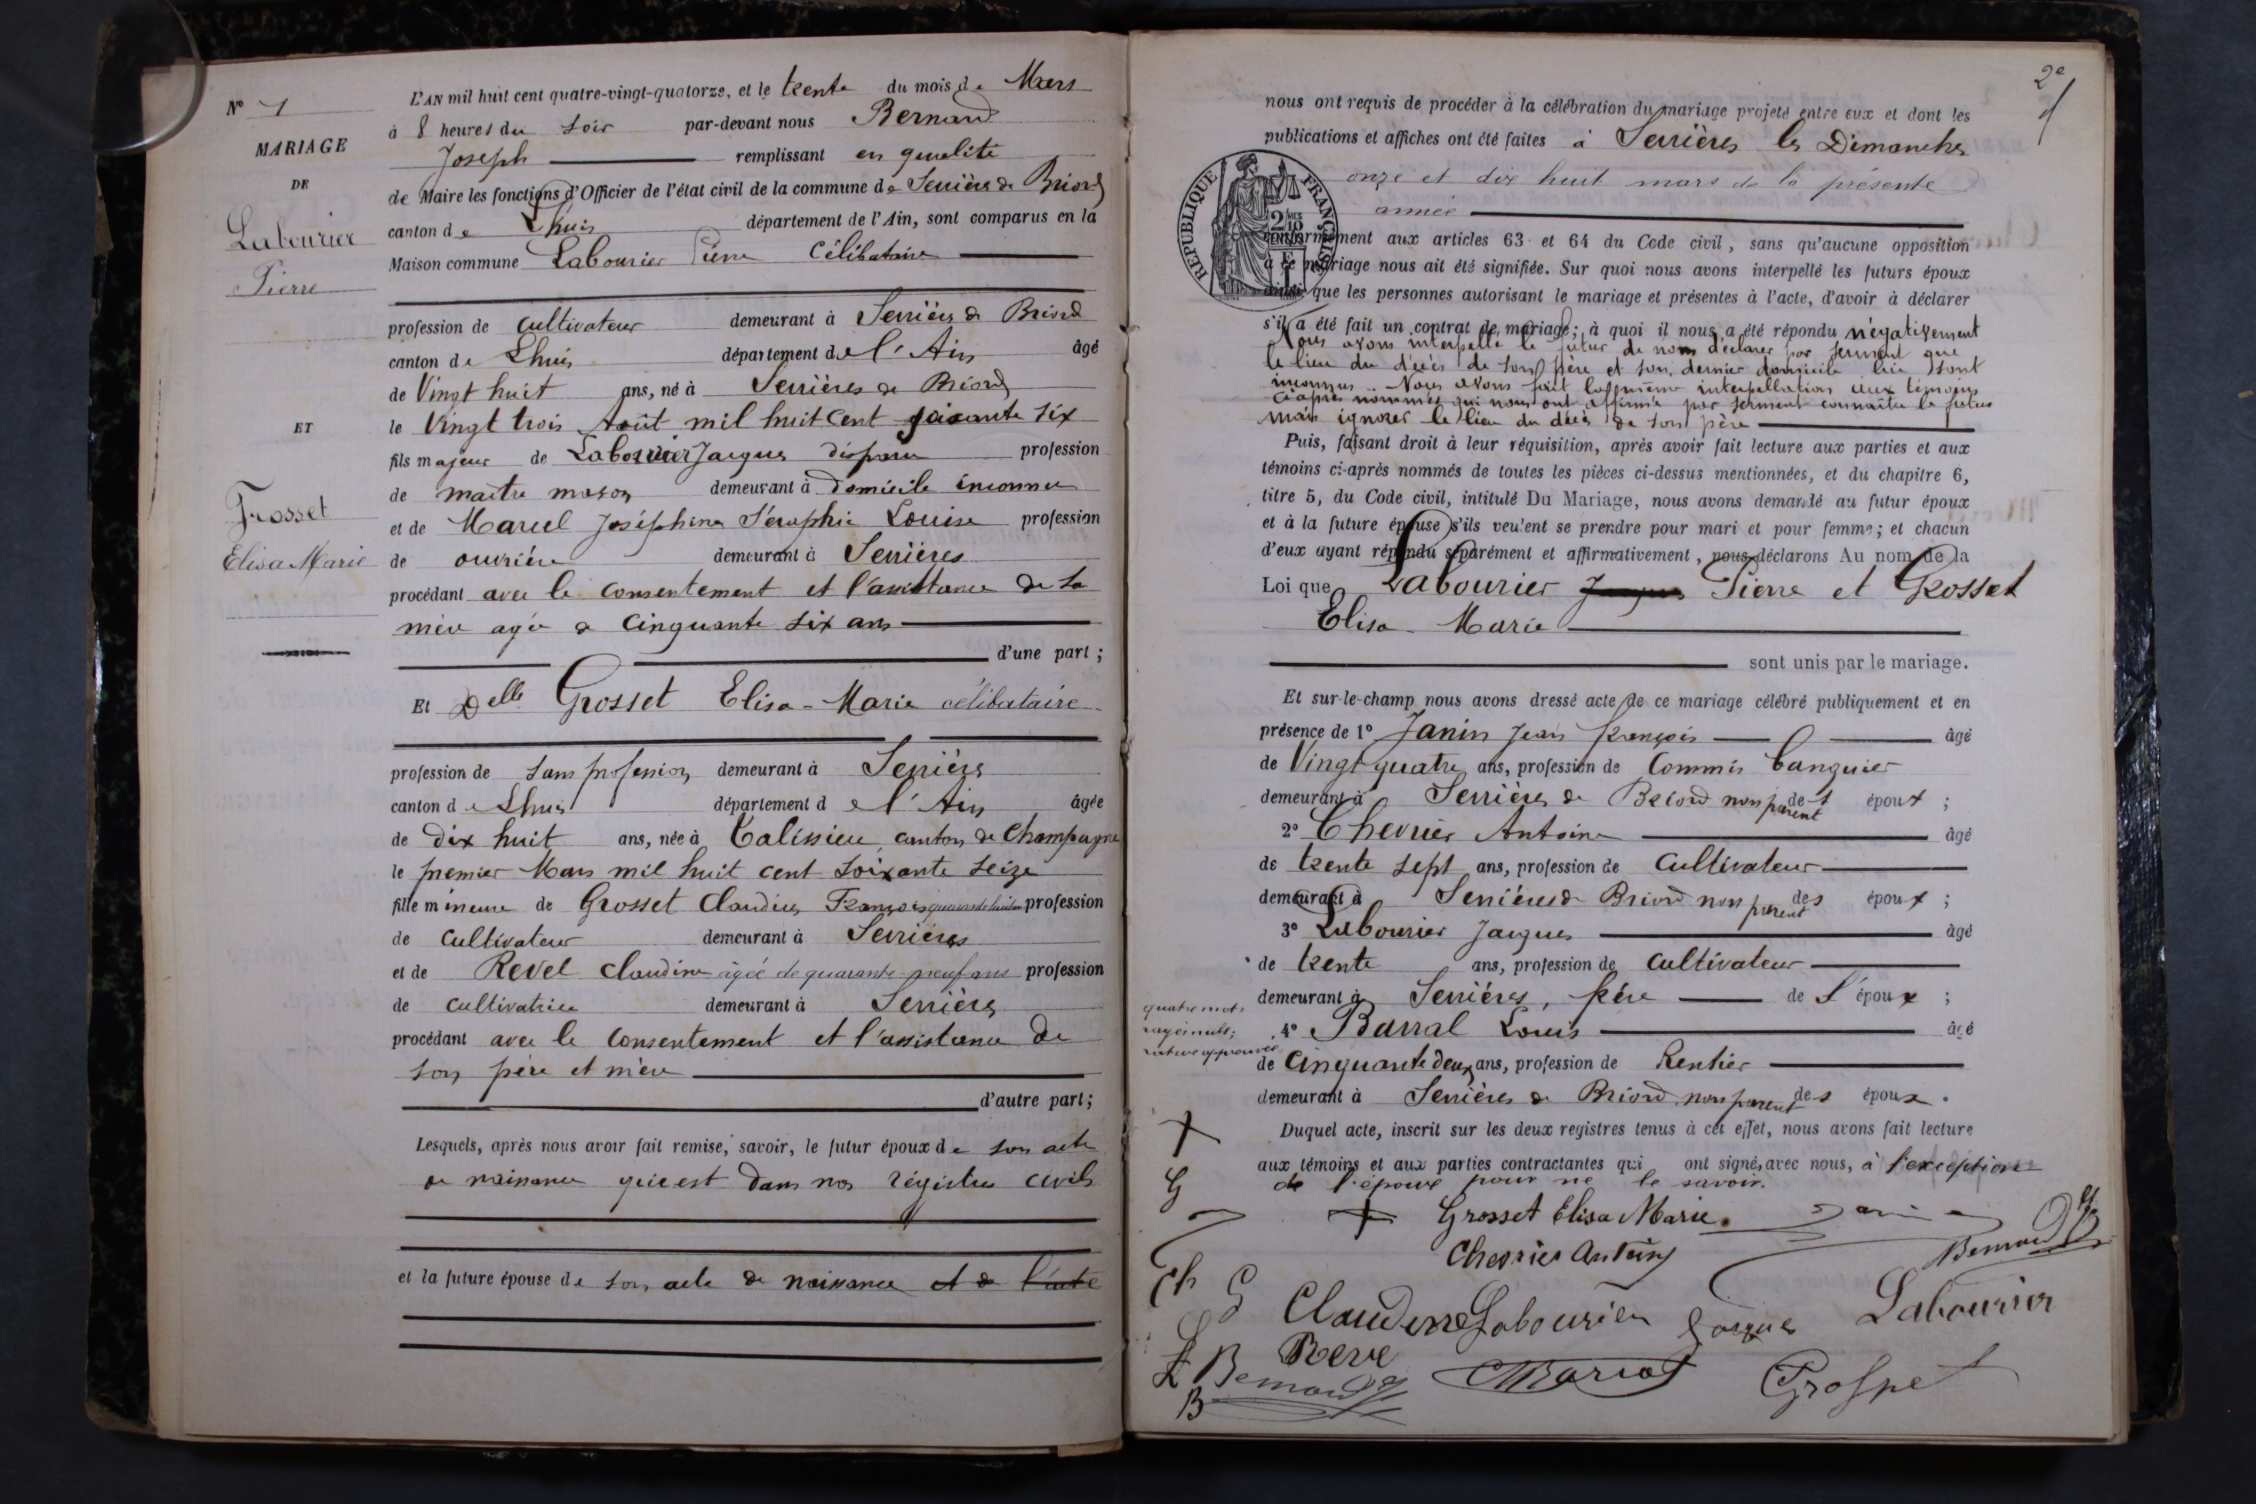 N° 1
MARIAGE
DE
Labourier
Pierre
ET
Grosset
Elisa Marie
L'AN mil huit cent quatre-vingt-quatorze, et le trente du mois de Mars
à 8 heures du soir par-devant nous Bernard
Joseph remplissant en qualité
de Maire les fonctions d'Officier de l'état civil de la commune de Serrières de Briord
canton de Lhuis département de l'Ain, sont comparus en la
Maison commune Labourier Pierre Célibataire
profession de cultivateur demeurant à Serrières de Briord
canton de Lhuis département de l'Ain âgé
de Vingt huit ans, né à Serrières de Briord
le Vingt trois Août mil huit cent soixante six
fils majeur de Labourier Jacques disparu profession
de maître maçon demeurant à domicile inconnu
et de Marcel Joséphine Séraphie Louise profession
de ouvrière demeurant à Serrières
procédant avec le consentement et l'assistance de sa
mère agée de cinquante six ans
d'une part ;
Et Delle Grosset Elisa-Marie célibataire
profession de sans profession demeurant à Serrières
canton de Lhuis département de l'Ain âgée
de dix huit ans, née à Talissieu canton de Champagne
le premier Mars mil huit cent soixante seize
fille mineure de Grosset Claudius François quarante huit ans profession
de cultivateur demeurant à Serrières
et de Revel Claudine âgée de quarante neuf ans profession
de cultivatrice demeurant à Serrières
procédant avec le consentement et l'assistance de
son père et mère
d'autre part ;
Lesquels, après nous avoir fait remise, savoir, le futur époux de son acte
de naissance qui est dans nos régistres civils
et la future épouse de son acte de naissance et de l'acte
2e
nous ont requis de procéder à la célébration du mariage projeté entre eux et dont les
publications et affiches ont été faites à Serrières les Dimanches
onze et dix huit mars de la présente
année
RÉPUBLIQUE FRANÇAISE
conformément aux articles 63 et 64 du Code civil, sans qu'aucune opposition
à ce mariage nous ait été signifiée. Sur quoi nous avons interpellé les futurs époux
ainsi que les personnes autorisant le mariage et présentes à l'acte, d'avoir à déclarer
s'il a été fait un contrat de mariage ; à quoi il nous a été répondu négativement
Nous avons interpellé le futur de nous déclarer par serment que
le lieu du décès de son père et son dernier domicile lui sont
inconnus. Nous avons fait la même interpellation aux témoins
ciaprès nommés qui nous ont affirmé par serment connaître le futur
mais ignorer le lieu du décès de son père
Puis, faisant droit à leur réquisition, après avoir fait lecture aux parties et aux
témoins ci-après nommés de toutes les pièces ci-dessus mentionnées, et du chapitre 6,
titre 5, du Code civil, intitulé Du Mariage, nous avons demandé au futur époux
et à la future épouse s'ils veulent se prendre pour mari et pour femme ; et chacun
d'eux ayant répondu séparément et affirmativement, nous déclarons Au nom de la
Loi que Labourier Jacques Pierre et Grosset
Elisa-Marie
sont unis par le mariage.
Et sur-le-champ nous avons dressé acte de ce mariage célébré publiquement et en
présence de 1° Janin Jean François âgé
de Vingt quatre ans, profession de Commis banquier
demeurant à Serrières de Briord non parent des époux ;
2° Chevrier Antoine âgé
de trente sept ans, profession de cultivateur
demeurant à Serrières de Briord non parent des époux ;
3° Labourier Jacques âgé
de trente ans, profession de cultivateur
demeurant à Serrières, frère de l'époux ;
quatre mots
rayés nuls ;
rature approuvée
4° Barral Louis âgé
de cinquante deux ans, profession de Rentier
demeurant à Serrières de Briord non parent des époux.
Duquel acte, inscrit sur les deux registres tenus à cet effet, nous avons fait lecture
aux témoins et aux parties contractantes qui ont signé, avec nous, à l'exception
de l'épouse pour ne le savoir.
G
Grosset Elisa Marie. Janin
Bernard
Chevrier Antoine
Ch G
Claudine Labourier Jacques Labourier
Reve
L B Bernard Grosset
B